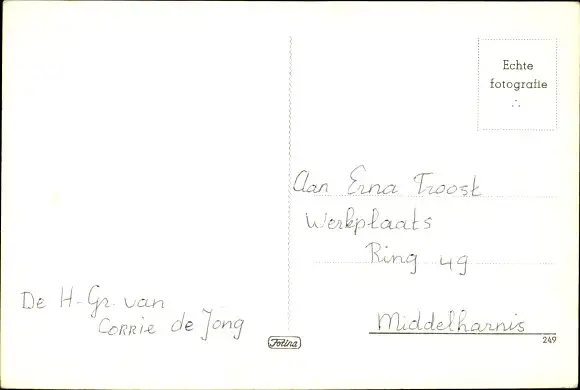 Echte
fotografie
Aan Erna Troost
Werkplaats
Ring 49
Middelharnis
De H-Gr. van
Corrie de Jong
Fotina
249